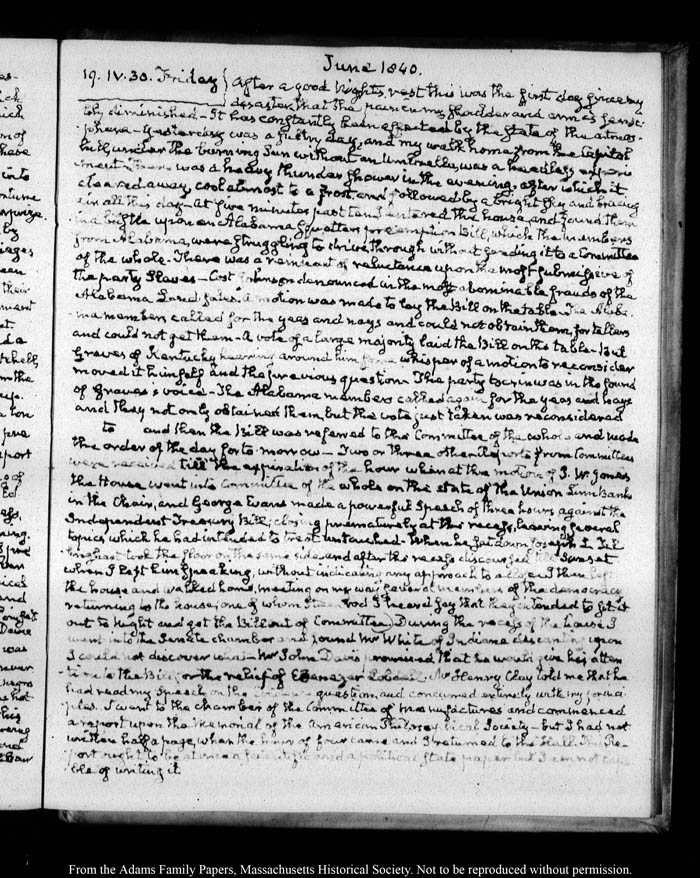 June 1840.
19. IV. 30. Friday } After a good night's rest this was the first day since my
disaster that the pain in my shoulder and arm is sensi-
bly diminished — It has constantly been affected by the state of the atmos-
phere — Yesterday was a sultry day, and my walk home from the Capitol
hill, under the burning Sun without an Umbrella, was a heedless experi-
ment. There was a heavy thunder shower in the evening, after which it
cleared away, cool almost to a frost, and followed by a bright sky and bracing
air all this day — at five minutes past ten I entered the house, and found them
in a bustle upon an Alabama Squatters pre-emption Bill, which the members
from Alabama, were struggling to drive through without sending it to a Committee
of the whole. There was a remnant of reluctance upon the most submissive of
the party Slaves — Cost Johnson denounced in the most abominable frauds of the
Alabama Land sales. A motion was made to lay the Bill on the table. The Alaba-
ma members called for the yeas and nays and could not obtain them, for tellers
and could not get them — A vote of a large majority laid the Bill on the table — But
Graves of Kentucky hearing around him some whisper of a motion to reconsider
moved it himself and the previous question. The party screw was in the sound
of Graves's voice — The Alabama members called again for the yeas and nays
and they not only obtained them, but the vote just taken was reconsidered
to and then the Bill was referred to the Committee of the whole and made
the order of the day for to-morrow — Two or three other reports from Committees
were received till the expiration of the hour when at the motion of J. W. Jones
the House went into Committee of the whole on the state of the Union Linn Banks
in the Chair, and George Evans made a powerful Speech of three hours against the
Independent Treasury Bill, closing prematurely at the recess, leaving several
topics which he had intended to treat untouched — When he sat down Joseph L. Til-
linghast took the floor on the same side and after the recess discoursed till Sunset
when I left him speaking, without indicating any approach to a close. I then left
the house and walked home, meeting on my way several members of the democracy
returning to the house, one of whom I heard say that they intended to sit it
out to night and get the Bill out of Committee. During the recess of the house I
went into the Senate chamber and found Mr White of Indiana descanting upon
I could not discover what — Mr John Davis promised that he would give his atten-
tion to the Bill for the relief of Ebenezer Mr Henry Clay told me that he
had read my Speech on the question and concurred entirely with my princi-
ples. I went to the chamber of the Committee of Manufactures and commenced
a report upon the Memorial of the American Philosophical Society — but I had not
written half a page, when the hour of four came and I returned to the Hall. This Re-
port ought to be at once a scientific and a political State paper but I am not capa-
ble of writing it
From the Adams Family Papers, Massachusetts Historical Society. Not to be reproduced without permission.